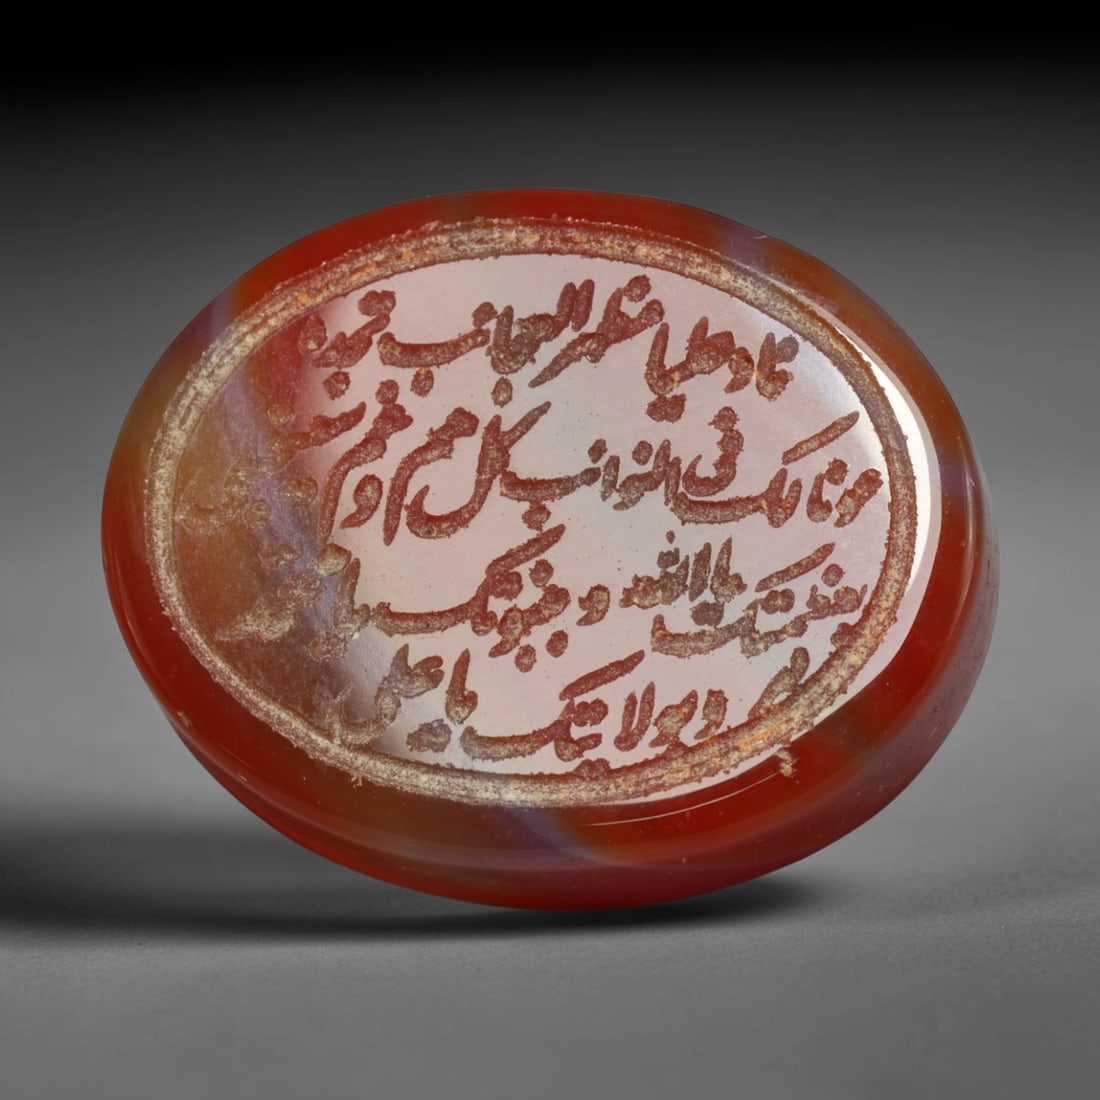 ناد علیا مظهر العجائب تجده
عونا لک فی النوائب کل هم و غم
بعظمتک یا الله و بنبوتک یا
و بولایتک یا علی